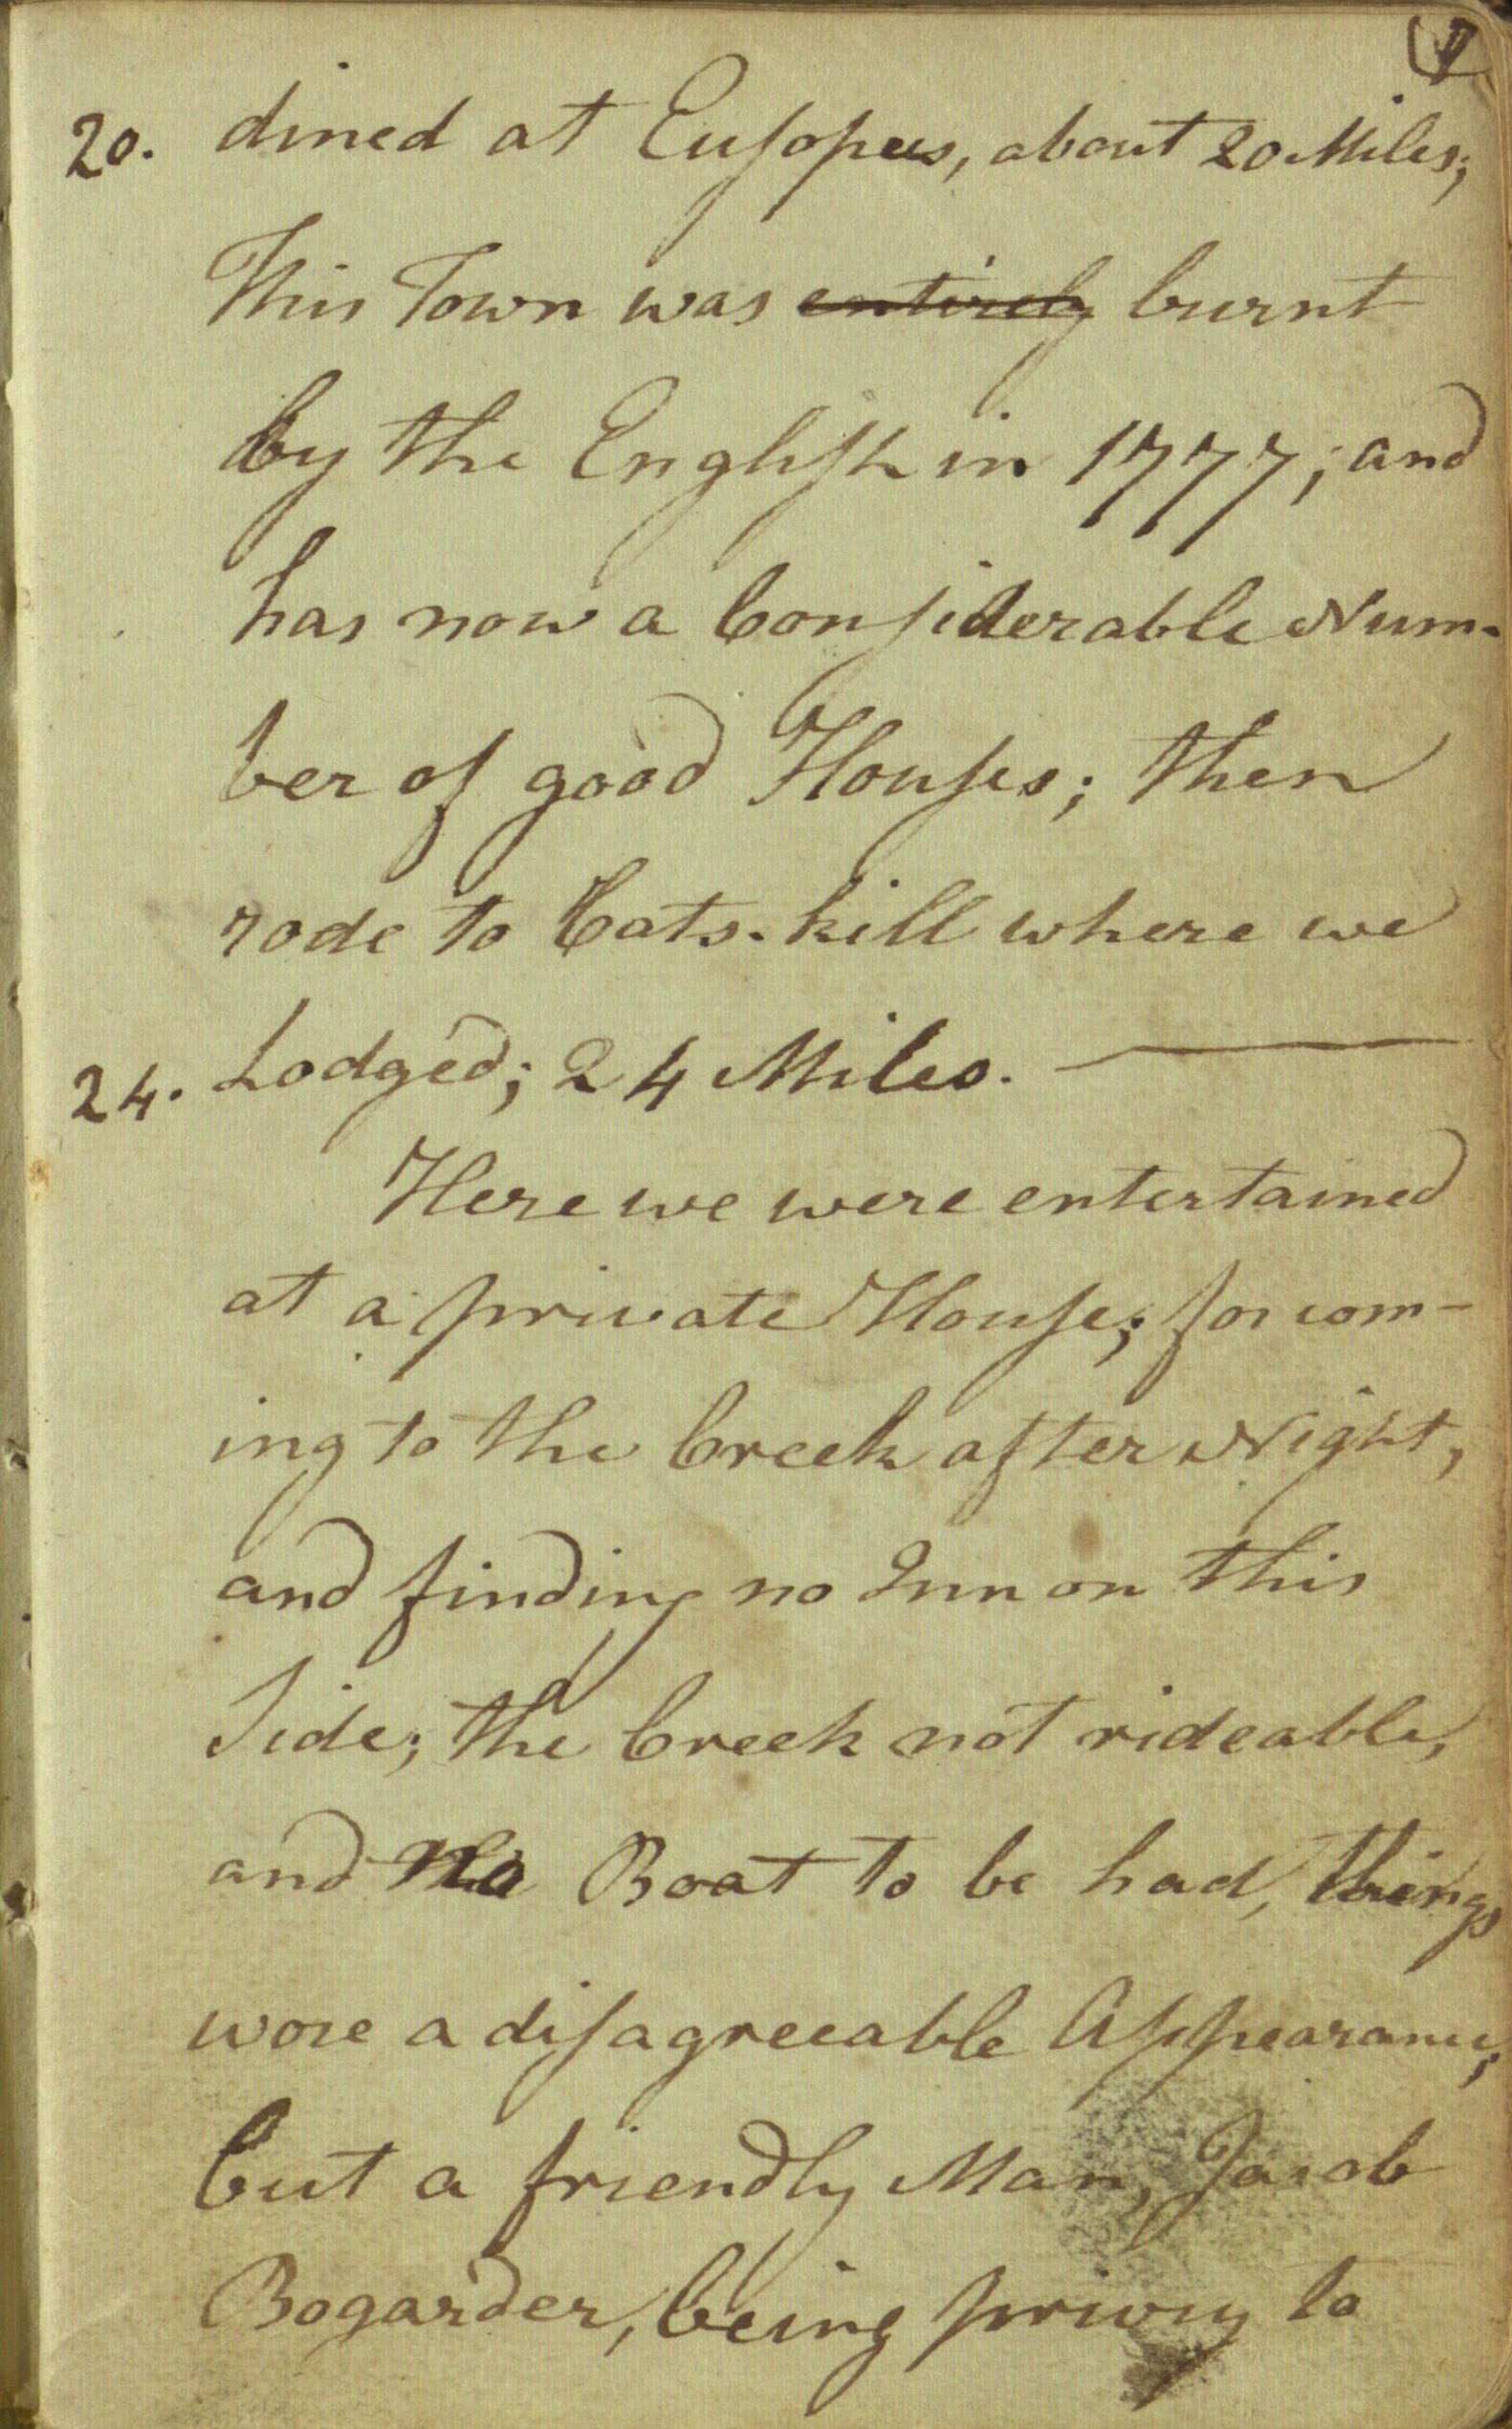 20. dined at Eusopus, about 20 Miles;
This Town was entirely burnt
by the English in 1777; and
has now a Considerable Num-
ber of good Houses; then
rode to Cats-kill where we
24. Lodged; 24 Miles.
Here we were entertained
at a private House; for com-
ing to the Creek after Night,
and finding no Inn on this
Side; the Creek not rideable,
and no Boat to be had, things
wore a disagreeable Appearance;
but a friendly Man, Jacob
Bogarder, being privy to